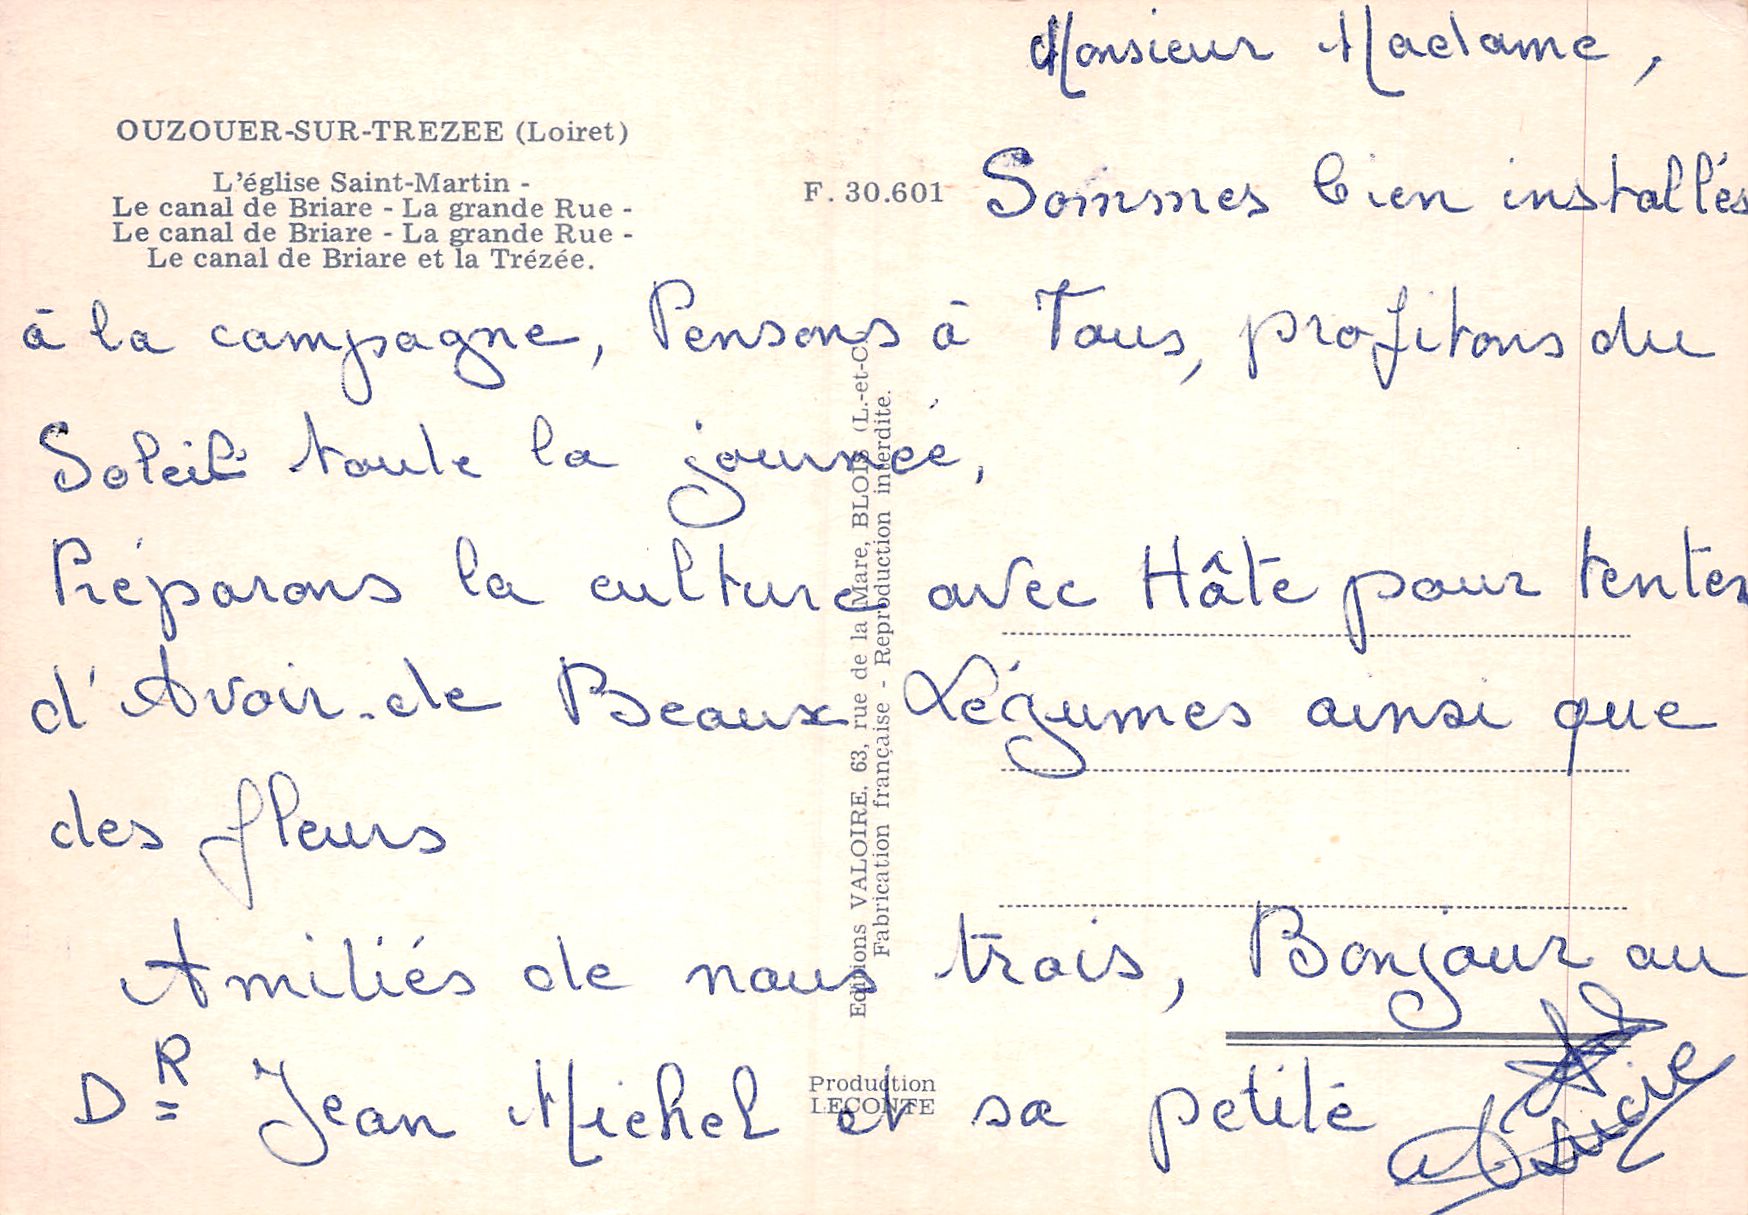 Monsieur Madame,
OUZOUER-SUR-TREZEE (Loiret)
L'église Saint-Martin -
Le canal de Briare - La grande Rue -
Le canal de Briare - La grande Rue -
Le canal de Briare et la Trézée.
F. 30.601
Sommes bien installés
à la campagne, Pensons à Tous, profitons du
Soleil toute la journée,
Préparons la culture avec Hâte pour tenter
d'Avoir de Beaux Légumes ainsi que
des fleurs
Amitiés de nous trois, Bonjour au
DR Jean Michel et sa petite
Editions VALOIRE, 63, rue de la Mare, BLOIS (L.-et-C
Fabrication française - Reproduction interdite.
Production
LECONTE